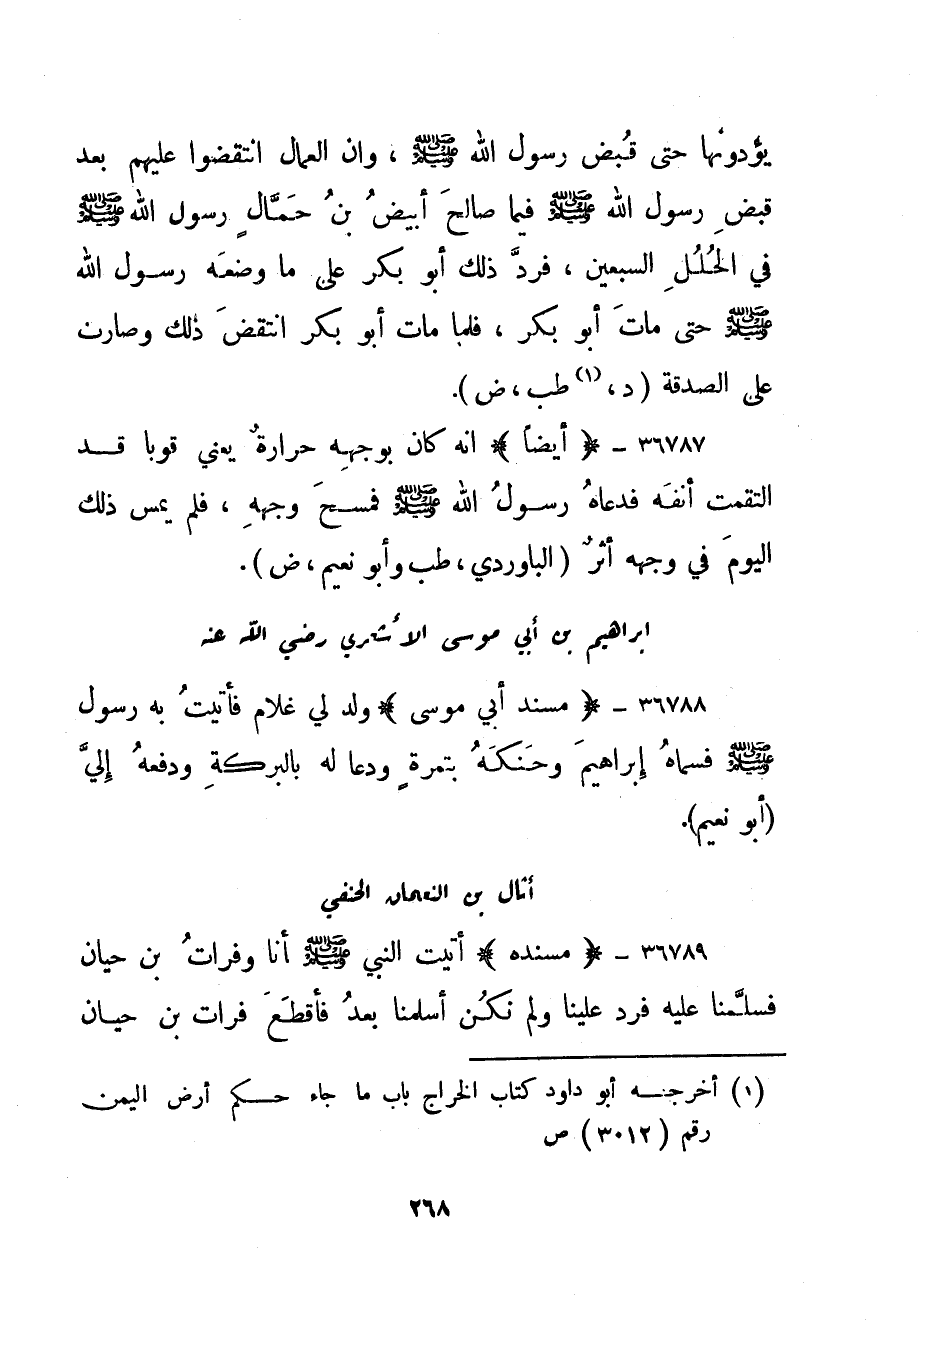 يؤدونها حتى قُبض رسول الله ﷺ ، وان العمال انتقضوا عليهم بعد
قبضِ رسول الله ﷺ فيما صالحَ أبيضُ بنُ حَمَّالٍ رسول الله ﷺ
في الحُلُلِ السبعين ، فردَّ ذلك أبو بكر على ما وضعَه رسول الله
ﷺ حتى ماتَ أبو بكر ، فلما مات أبو بكر انتقضَ ذلك وصارت
على الصدقة ( د ، (١) طب ، ض ) .
٣٦٧٨٧ – ﴿ أيضاً ﴾ انه كان بوجهِه حرارةٌ يعني قوبا قد
التقمت أنفَه فدعاهُ رسولُ الله ﷺ فمسحَ وجههِ ، فلم يمس ذلك
اليومَ في وجهه أثرٌ ( الباوردي ، طب وأبو نعيم ، ض ) .
ابراهيم بن أبي موسى الأشعري رضي الله عنه
٣٦٧٨٨ – ﴿ مسند أبي موسى ﴾ ولد لي غلام فأتيتُ به رسول
ﷺ فسماهُ إبراهيمَ وحَنكَهُ بتمرةٍ ودعا له بالبركةِ ودفعهُ إليَّ
(أبو نعيم).
أثال بن النعمان الحنفي
٣٦٧٨٩ – ﴿ مسنده ﴾ أتيت النبي ﷺ أنا وفراتُ بن حيان
فسلَّمنا عليه فرد علينا ولم نكُن أسلمنا بعدُ فأقطعَ فرات بن حيان
(١) أخرجه أبو داود كتاب الخراج باب ما جاء حكم أرض اليمن
رقم ( ٣٠١٢ ) ص
٢٦٨